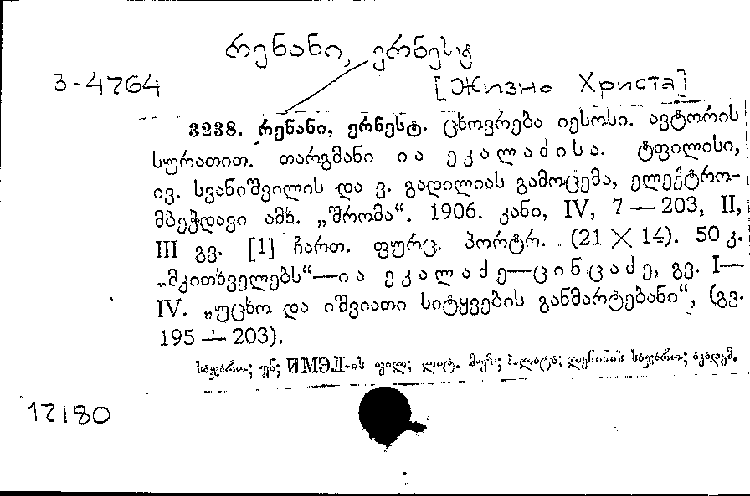 რენანი, ერნესტ
3-4764 [Жизнь Христа]
3238. რენანი, ერნესტ. ცხოვრება იესოსი. ავტორის
სურათით. თარგმანი ია ეკალაძისა. ტფილისი,
ივ. სვანიშვილის და ვ. გადილიას გამოცემა, ელექტრო-
მბეჭდავი ამხ. „შრომა“. 1906. კანი, IV, 7—203, II,
III გვ. [1] ჩართ. ფურც. პორტრ. (21 X 14). 50 კ.
„მკითხველებს“—ია ეკალაძე—ცინცაძე, გვ. I—
IV. „უცხო და იშვიათი სიტყვების განმარტებანი“, (გვ.
195—203).
საჯარო; უნ; ИМЭЛ-ის ფილ; ლიტ. მუზ; პ. ლატა; ლენინის საჯარო; აკადემ.
12180